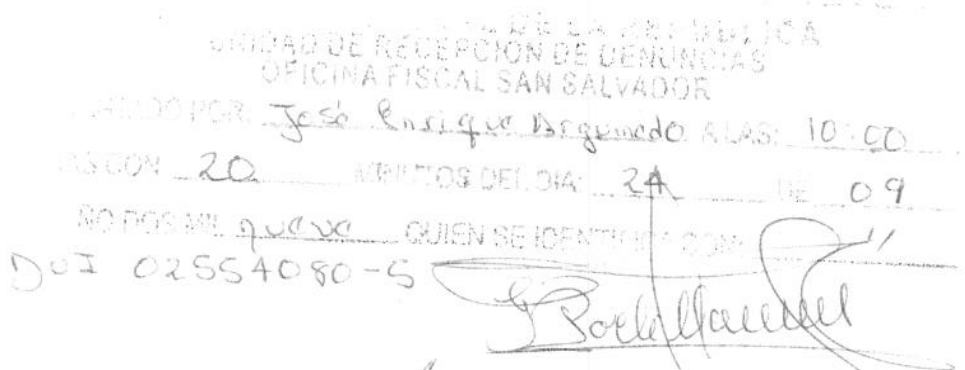 DE LA REPUBLICA
UNIDAD DE RECEPCION DE DENUNCIAS
OFICINA FISCAL SAN SALVADOR
POR: José Enrique Argumedo A LAS: 10:00
CON 20 MINUTOS DEL DIA: 24 DE 09
DOS MIL nueve QUIEN SE IDENTIFICA CON:
DUI 02554080-5